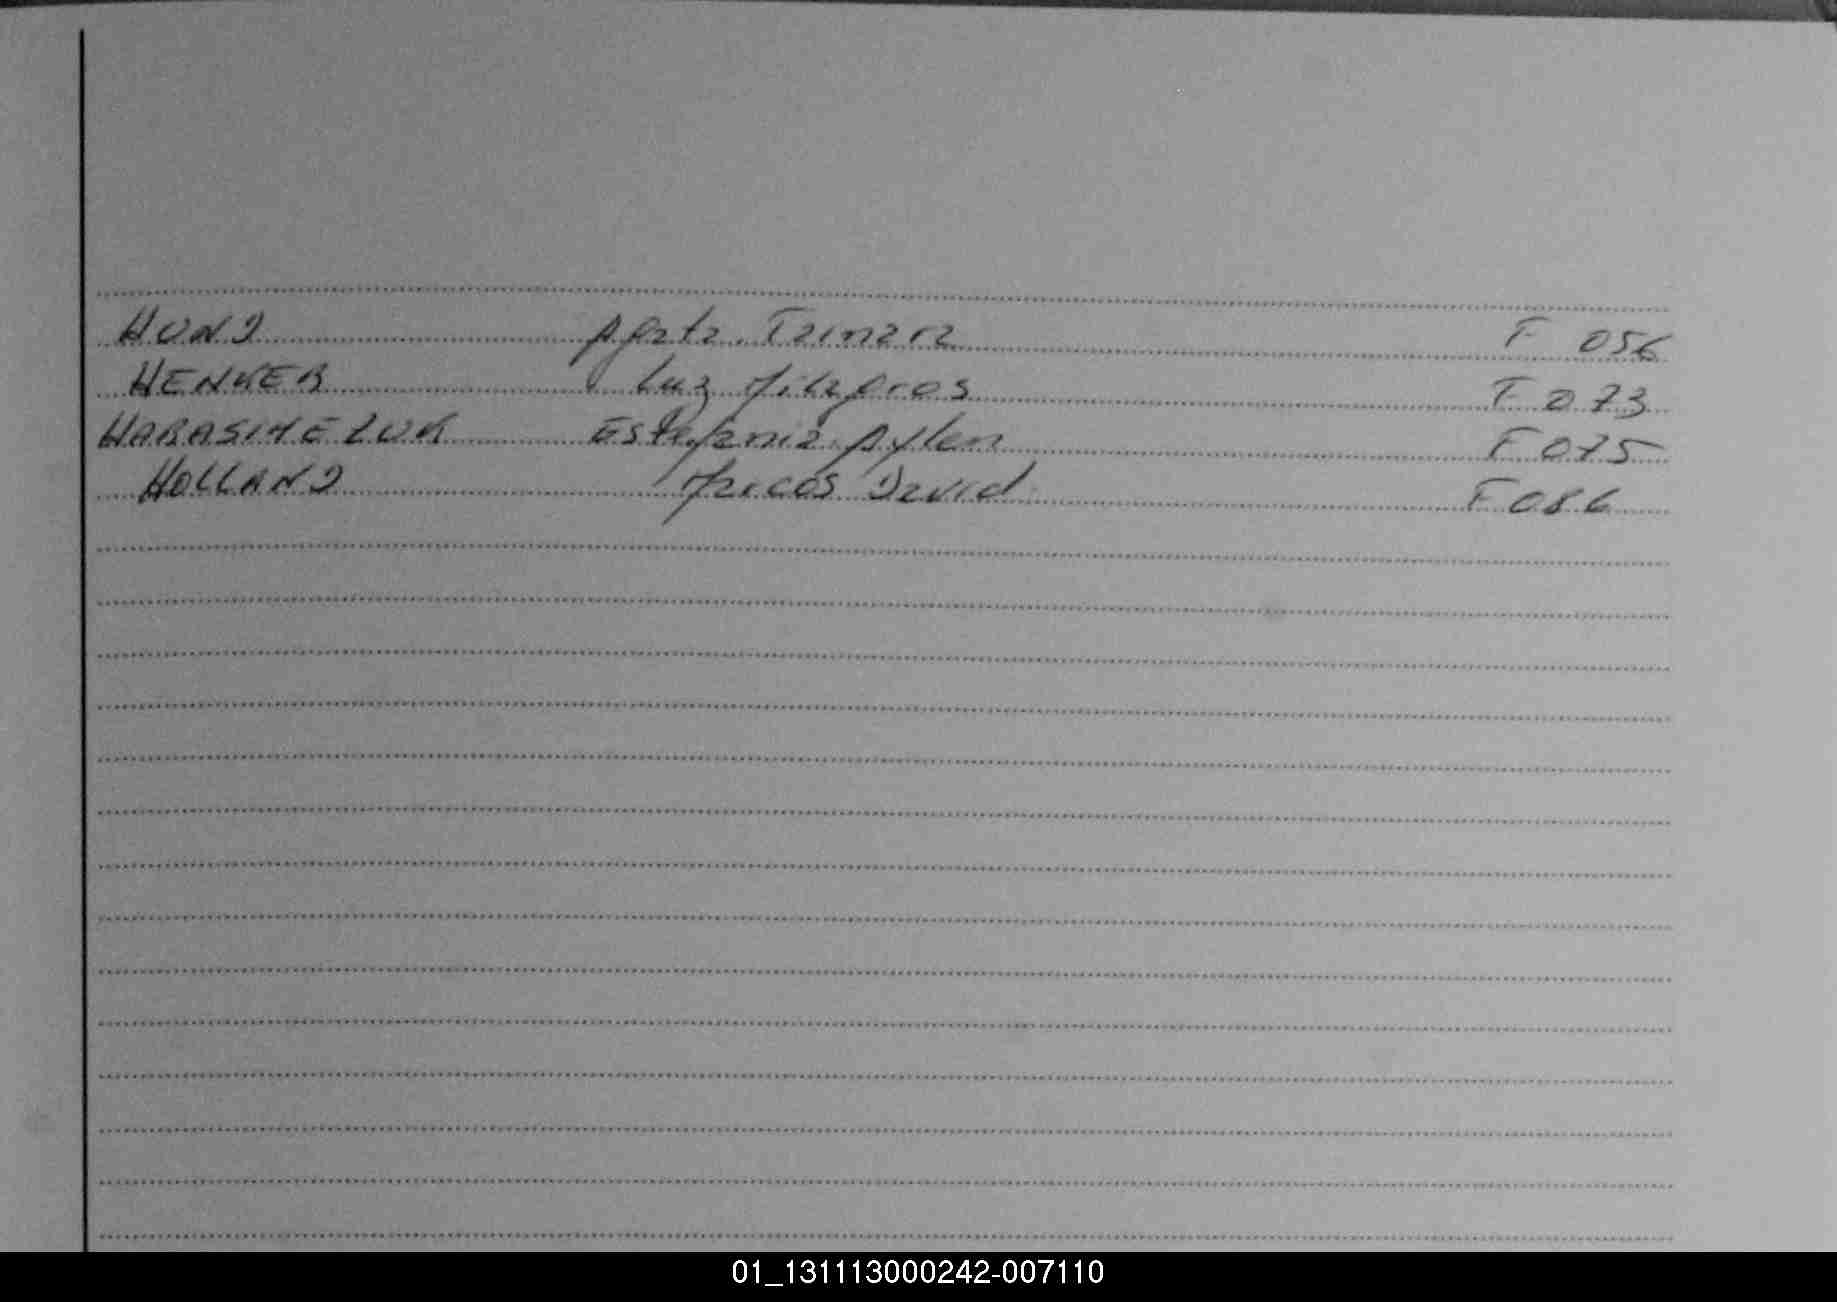 HUND Agata Tamara F 056
HENKER Luz Milagros F 073
HARASIMEZUK Estefania Aylen F 075
HOLLAND Marcos David F 086
01_131113000242-007110